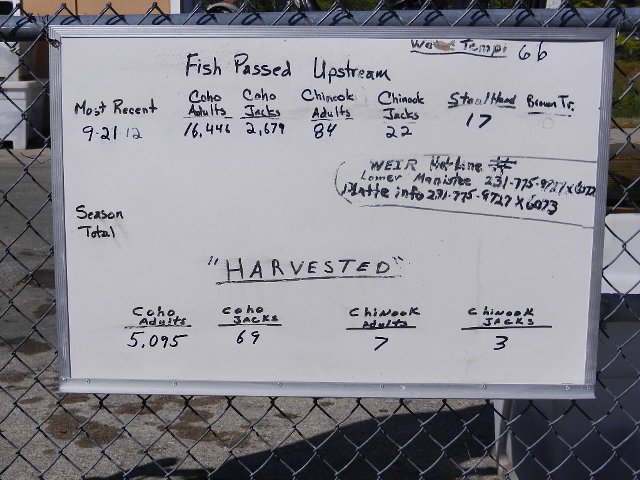 Water Temp 66
Fish Passed Upstream
Most Recent Coho Adults Coho Jacks Chinook Adults Chinook Jacks Steelhead Brown Tr.
9-21-12 16,446 2,679 84 22 17 0
WEIR Hot Line #
Lower Manistee 231-775-9727 x 6072
Platte info 231-775-9727 x 6073
Season
Total
"HARVESTED"
Coho Adults Coho Jacks Chinook Adults Chinook Jacks
5,095 69 7 3